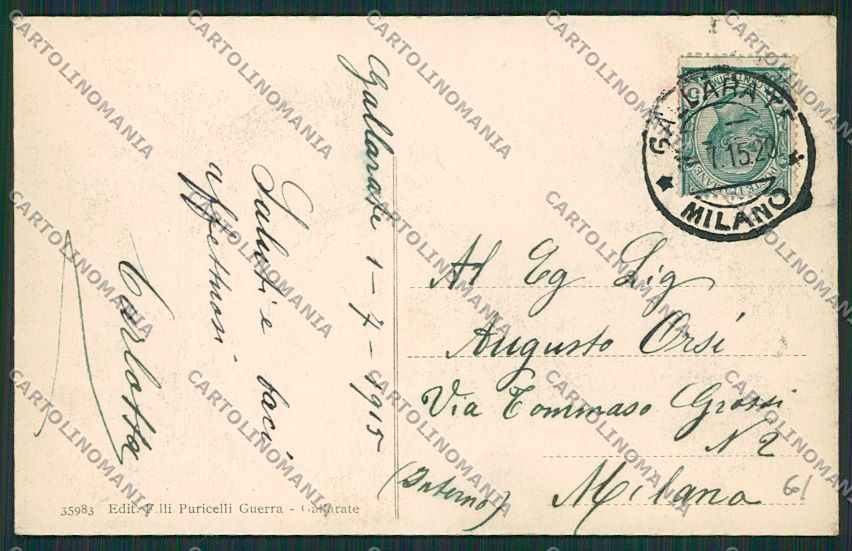 Gallarate 1-7-1915
Saluti e baci
affettuosi
Carlotta
35983 Edit. F.lli Puricelli Guerra - Gallarate
GALLARATE
7.15.20
MILANO
Al Eg Sig
Augusto Orsi
Via Tommaso Grossi
N 2
(Interno) Milano
61
CARTOLINOMANIA